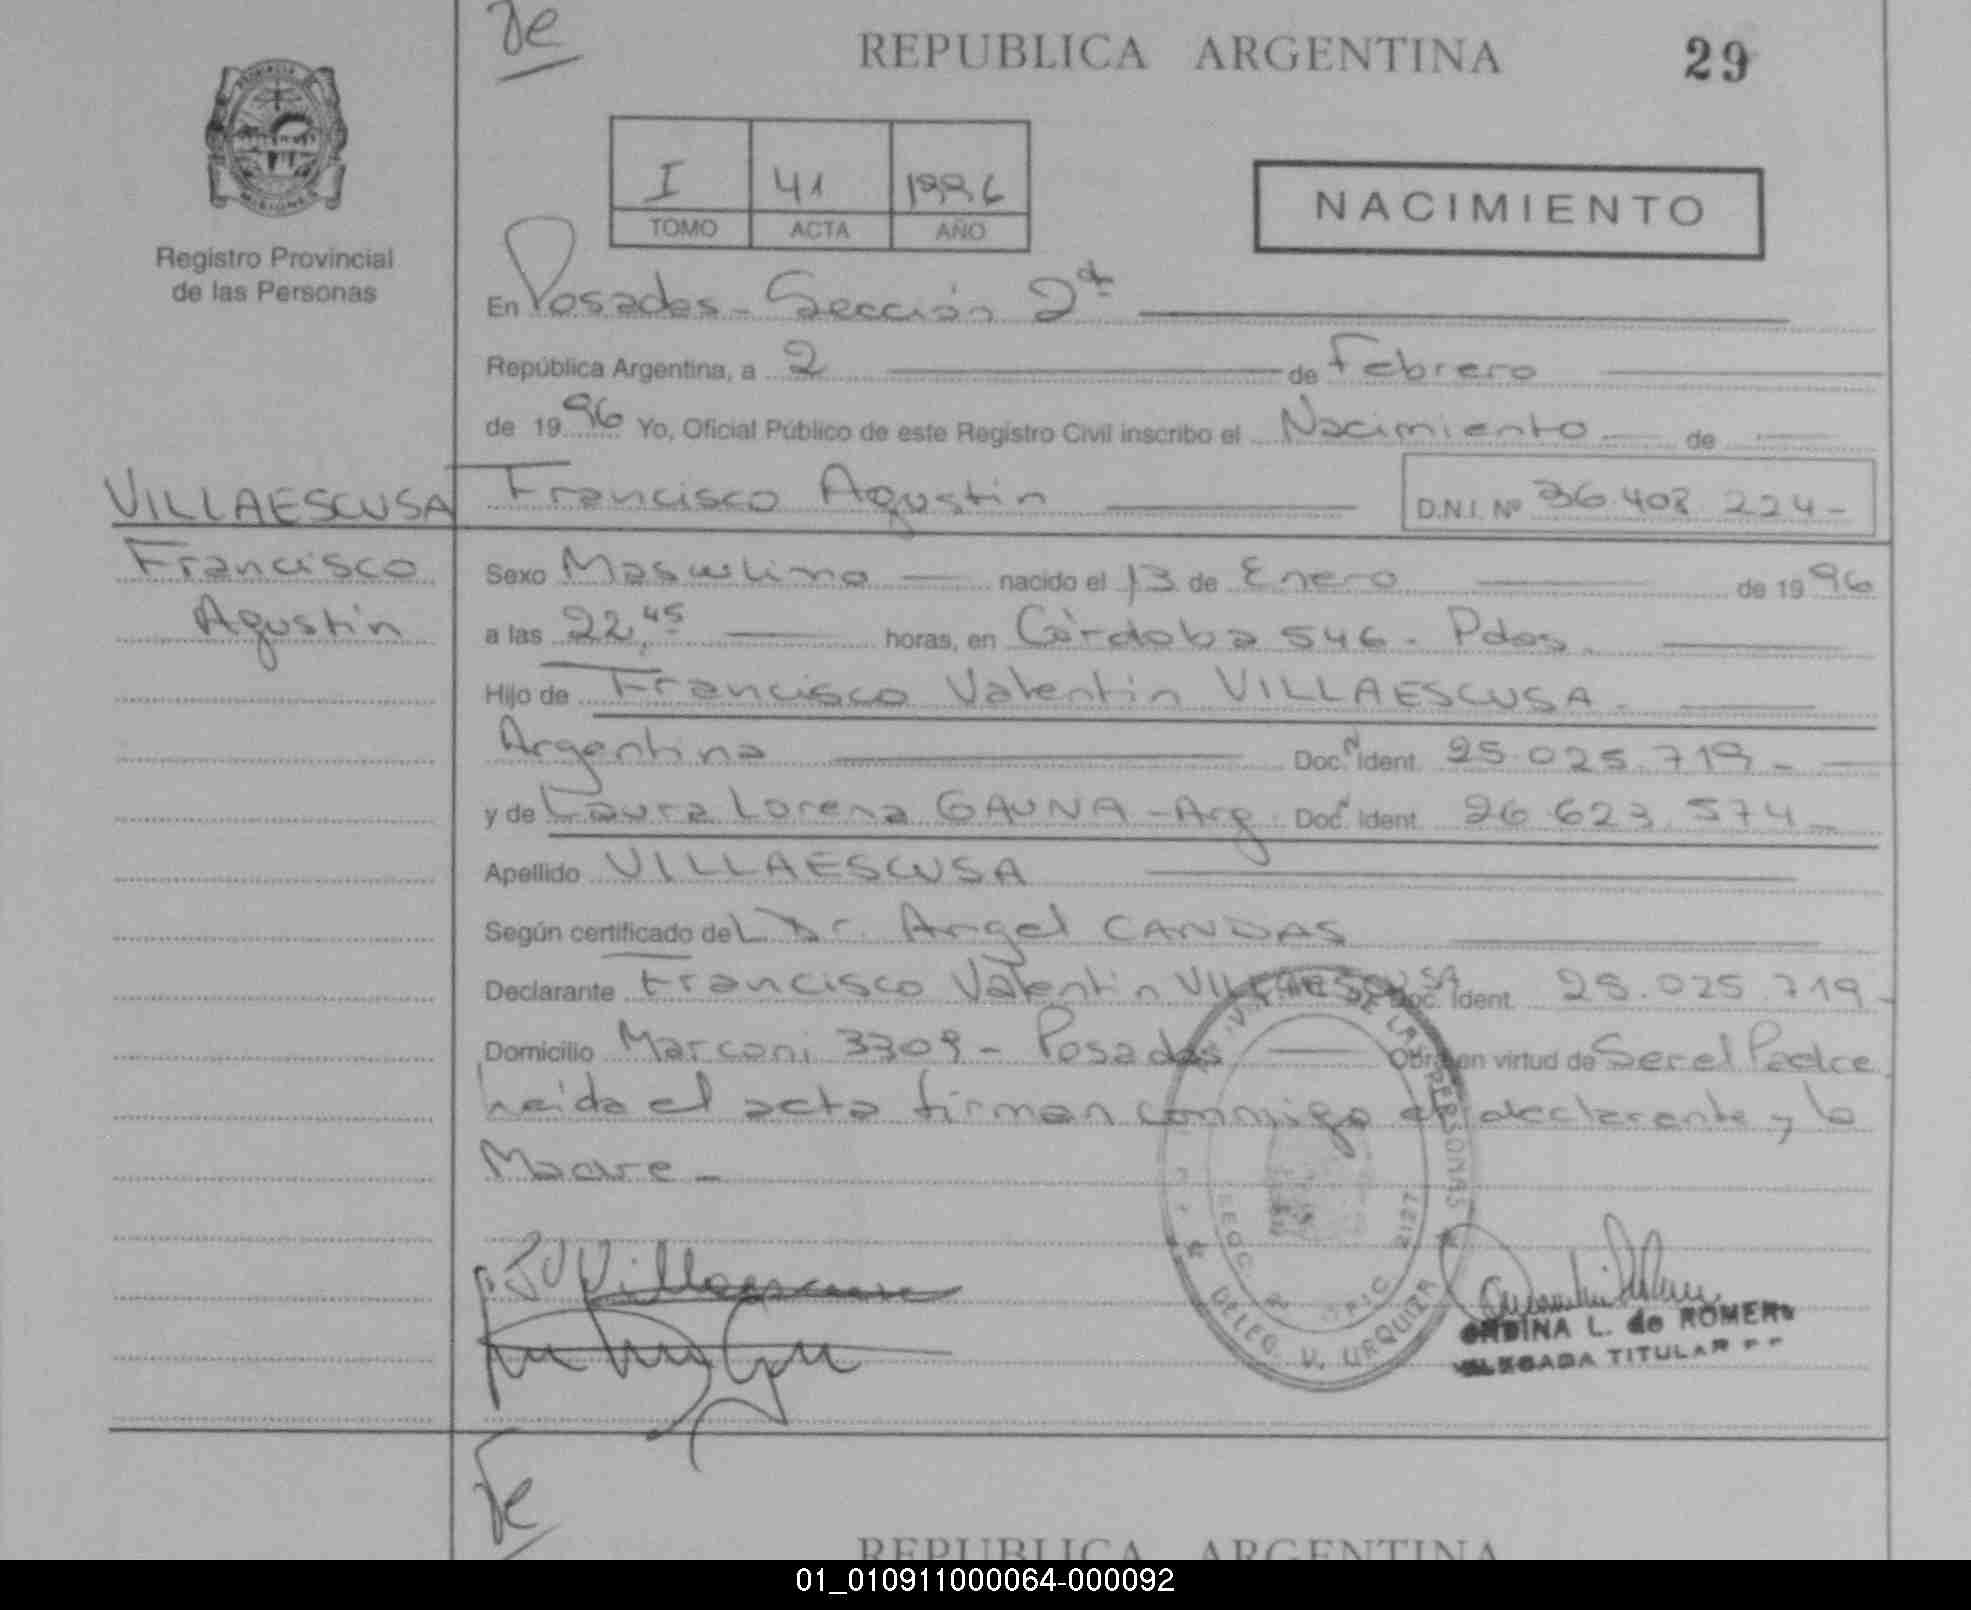 Te
REPUBLICA ARGENTINA
29
PROVINCIA DE MISIONES
Registro Provincial
de las Personas
I 41 1996
TOMO ACTA AÑO
NACIMIENTO
En Posadas - Sección 2ª
República Argentina, a 2 de Febrero
de 1996 Yo, Oficial Público de este Registro Civil inscribo el Nacimiento de
VILLAESCUSA Francisco Agustin D.N.I. Nº 36.408.224-
Francisco
Agustin
Sexo Masculino nacido el 13 de Enero de 1996
a las 22,45 horas, en Córdoba 546 - Pdas.
Hijo de Francisco Valentin VILLAESCUSA -
Argentina Doc.N Ident. 25.025.719 -
y de Laura Lorena GAUNA - Arg. Doc.N Ident. 26.623.574 -
Apellido VILLAESCUSA
Según certificado del Dr. Angel CANDAS
Declarante Francisco Valentin VILLAESCUSA Doc. Ident. 25.025.719 -
Domicilio Marconi 3309 - Posadas Obra en virtud de Ser el Padre
Leida el acta firman conmigo el declarante y la
Madre -
DE LAS PERSONAS
2127
DELEG. V. URQUIZA
ONDINA L. de ROMERO
DELEGADA TITULAR
Te
REPUBLICA ARGENTINA
01_010911000064-000092